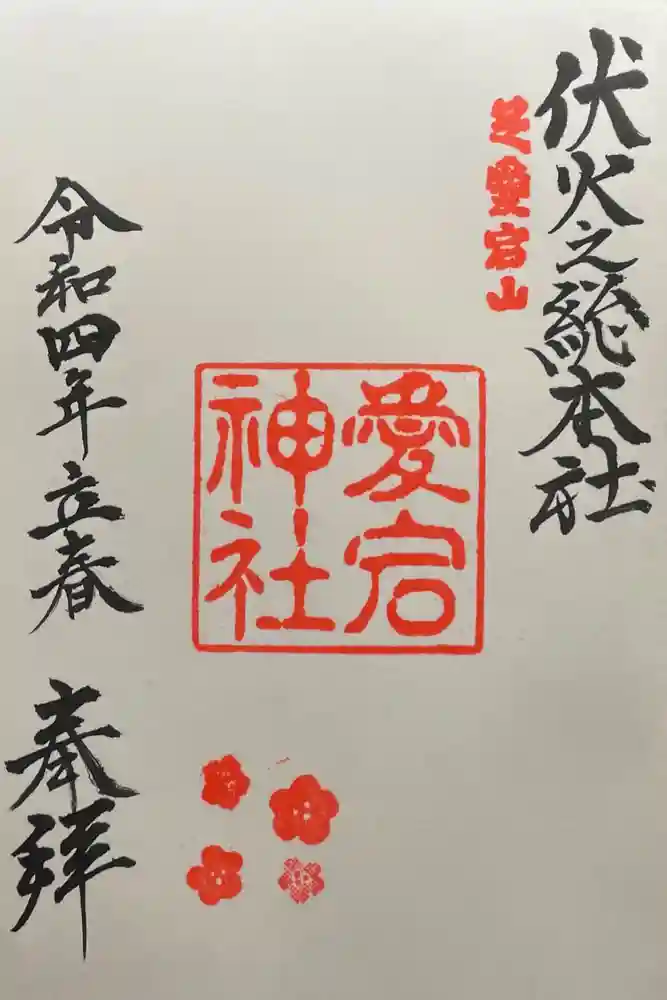 伏火之總本社
芝愛宕山
愛宕
神社
令和四年立春
奉拝